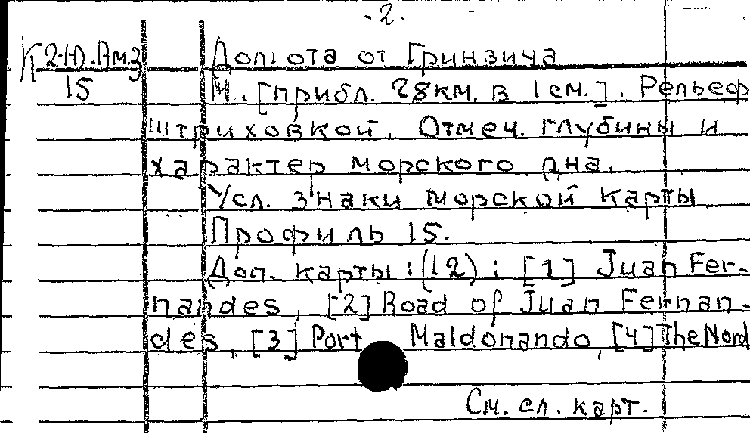 - 2.
К 2-Ю.Ам.3
15
Долгота от Гринвича
М. [прибл. 28км. в 1см.]. Рельеф
штриховкой. Отмеч. глубины и
характер морского дна.
Усл. знаки морской карты
Профиль 15.
Доп. карты: (12): [1] Juan Fer-
nandes, [2] Road of Juan Fernan-
des, [3] Port Maldonando, [4] The Nord
См. сл. карт.